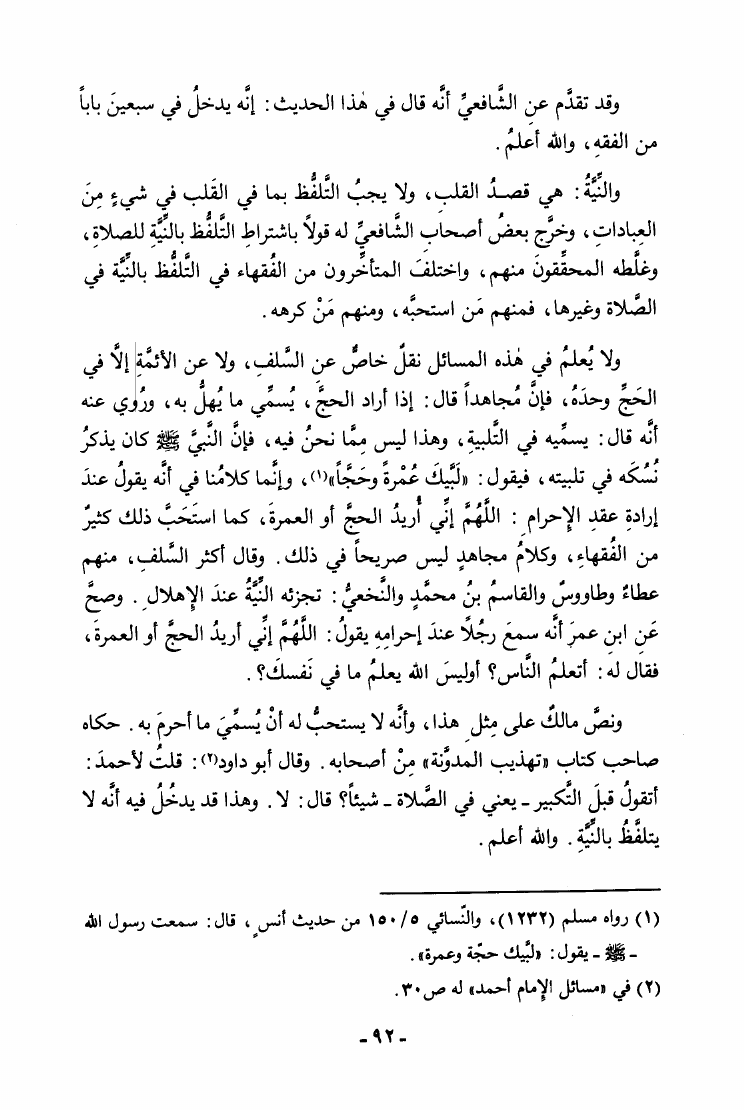 وقد تقدَّم عنِ الشَّافعيِّ أنَّه قال في هٰذا الحديث: إنَّه يدخلُ في سبعينَ باباً
من الفقهِ، والله أعلمُ.
والنِّيَّةُ: هي قصدُ القلبِ، ولا يجبُ التَّلفُّظ بما في القَلب في شيءٍ مِنَ
العباداتِ، وخرَّج بعضُ أصحابِ الشَّافعيِّ له قولاً باشتراطِ التَّلفُّظ بالنِّيَّة للصلاةِ،
وغلَّطه المحقِّقونَ منهم، واختلفَ المتأخِّرون من الفُقهاء في التَّلفُّظ بالنِّيَّة في
الصَّلاة وغيرها، فمنهم مَن استحبَّه، ومنهم مَنْ كرهه.
ولا يُعلمُ في هٰذه المسائل نقلٌ خاصٌّ عنِ السَّلفِ، ولا عن الأئمَّةِ إلَّا في
الحَجِّ وحدَهُ، فإنَّ مُجاهداً قال: إذا أراد الحجَّ، يُسمِّي ما يُهلُّ به، ورُوي عنه
أنَّه قال: يسمِّيه في التَّلبيةِ، وهذا ليس مِمَّا نحنُ فيه، فإنَّ النبيَّ ﷺ كان يذكرُ
نُسُكَه في تلبيته، فيقول: «لَبَّيكَ عُمْرةً وحَجَّاً»(١)، وإنَّما كلامُنا في أنَّه يقولُ عندَ
إرادةِ عقدِ الإحرام: اللَّهُمَّ إنِّي أُريدُ الحجَّ أو العمرةَ، كما استَحَبَّ ذلك كثيرٌ
من الفُقهاءِ، وكلامُ مجاهدٍ ليس صريحاً في ذلك. وقال أكثر السَّلفِ، منهم
عطاءٌ وطاووسٌ والقاسمُ بنُ محمَّدٍ والنَّخعيُّ: تجزئه النِّيَّةُ عندَ الإهلالِ. وصحَّ
عَنِ ابنِ عمرَ أنَّه سمعَ رجُلًا عندَ إحرامِهِ يقولُ: اللَّهُمَّ إنِّي أريدُ الحجَّ أو العمرةَ،
فقال له: أتعلمُ النَّاس؟ أوليسَ الله يعلمُ ما في نَفسكَ؟.
ونصَّ مالكٌ على مِثلِ هذا، وأنَّه لا يستحبُّ له أنْ يُسمِّيَ ما أحرمَ به. حكاه
صاحب كتاب «تهذيب المدوَّنة» مِنْ أصحابه. وقال أبو داود(٢): قلتُ لأحمدَ:
أتقولُ قبلَ التَّكبير ـ يعني في الصَّلاة ـ شيئاً؟ قال: لا. وهذا قد يدخُلُ فيه أنَّه لا
يتلفَّظُ بالنِّيَّةِ. والله أعلم.
(١) رواه مسلم (١٢٣٢)، والنّسائي ١٥٠/٥ من حديث أنسٍ، قال: سمعت رسول الله
ـ ﷺ ـ يقول: «لبَّيك حجّة وعمرة».
(٢) في «مسائل الإمام أحمد» له ص٣٠.
-٩٢-